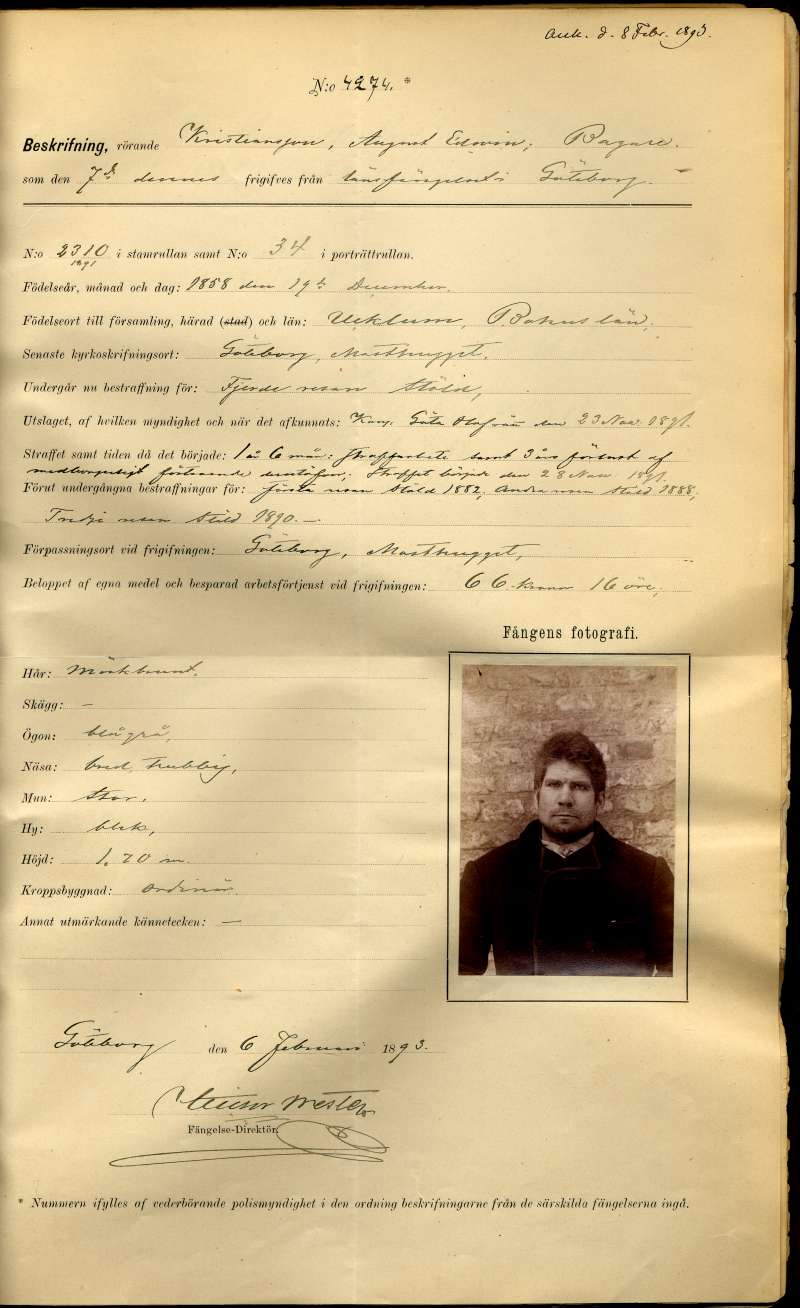 Ank. d. 8 Febr. 1893.
N:o 4274. *
Beskrifning, rörande Kristiansson, August Edwin; Bagare.
som den 7de dennes frigifves från länsfängelset i Göteborg.
N:o 2310 i stamrullan samt N:o 34 i porträttrullan.
1891
Födelseår, månad och dag: 1858 den 19de December.
Födelseort till församling, härad (stad) och län: Ucklum, Bohus län,
Senaste kyrkoskrifningsort: Göteborg, Masthugget.
Undergår nu bestraffning för: Fjerde resan Stöld,
Utslaget, af hvilken myndighet och när det afkunnats: Göta Hofrätt den 23 Nov. 1891.
Straffet samt tiden då det började: 1 år 6 mån: straffarbete samt 3 års förlust af
medborgerligt förtroende Straffet började den 28 Nov. 1891.
Förut undergångna bestraffningar för: första resan stöld 1882, Andra resan Stöld 1888,
Tredje resan Stöld 1890. —
Förpassningsort vid frigifningen: Göteborg, Masthugget,
Beloppet af egna medel och besparad arbetsförtjenst vid frigifningen: 66 kronor 16 öre,
Fångens fotografi.
Hår: Mörkbrunt,
Skägg: —
Ögon: blågrå,
Näsa: bred, trubbig,
Mun: Stor,
Hy: blek,
Höjd: 1.70 m.
Kroppsbyggnad: ordinär.
Annat utmärkande kännetecken: —
Göteborg den 6 Februari 1893.
Fängelse-Direktör.
* Nummern ifylles af vederbörande polismyndighet i den ordning beskrifningarne från de särskilda fängelserna ingå.